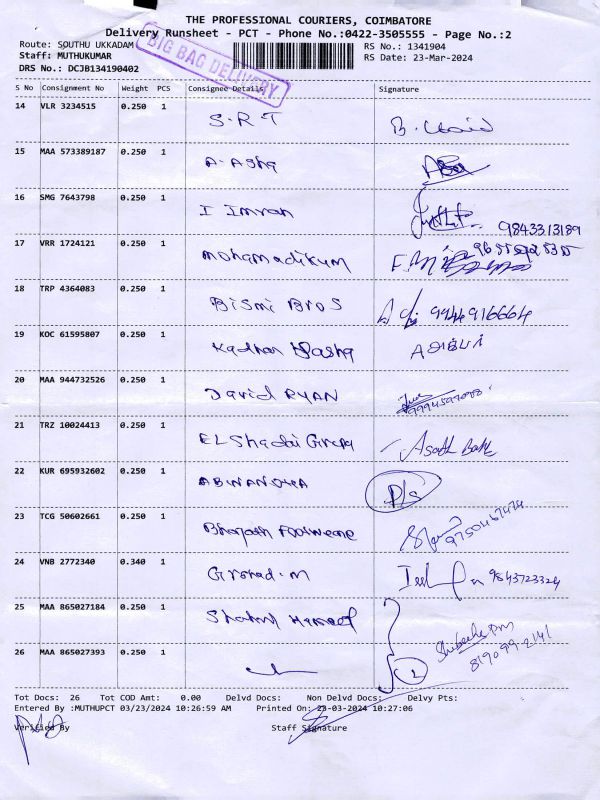 THE PROFESSIONAL COURIERS, COIMBATORE
Delivery Runsheet - PCT - Phone No.:0422-3505555 - Page No.:2
Route: SOUTHU UKKADAM
RS No.: 1341904
Staff: MUTHUKUMAR
RS Date: 23-Mar-2024
DRS No.: DCJB134190402
BIG BAG DELIVERY
S No Consignment No Weight PCS Consignee Details Signature
14 VLR 3234515 0.250 1 S.R.T
15 MAA 573389187 0.250 1 A. Asha
16 SMG 7643798 0.250 1 I Imran 9843313189
17 VRR 1724121 0.250 1 mohamadikum
18 TRP 4364083 0.250 1 Bismi Bros 9944916664
19 KOC 61595807 0.250 1 Kadhar Basha
20 MAA 944732526 0.250 1 David RYAN
21 TRZ 10024413 0.250 1 EL Shadai
22 KUR 695932602 0.250 1 ABINANDHA P/S
23 TCG 50602661 0.250 1 Bharath Footweare
24 VNB 2772340 0.340 1 M 9843723324
25 MAA 865027184 0.250 1 Shahul Hameed
26 MAA 865027393 0.250 1 819099 2141
2
Tot Docs: 26 Tot COD Amt: 0.00 Delvd Docs: Non Delvd Docs: Delvy Pts:
Entered By :MUTHUPCT 03/23/2024 10:26:59 AM Printed On: 23-03-2024 10:27:06
Verified By Staff Signature